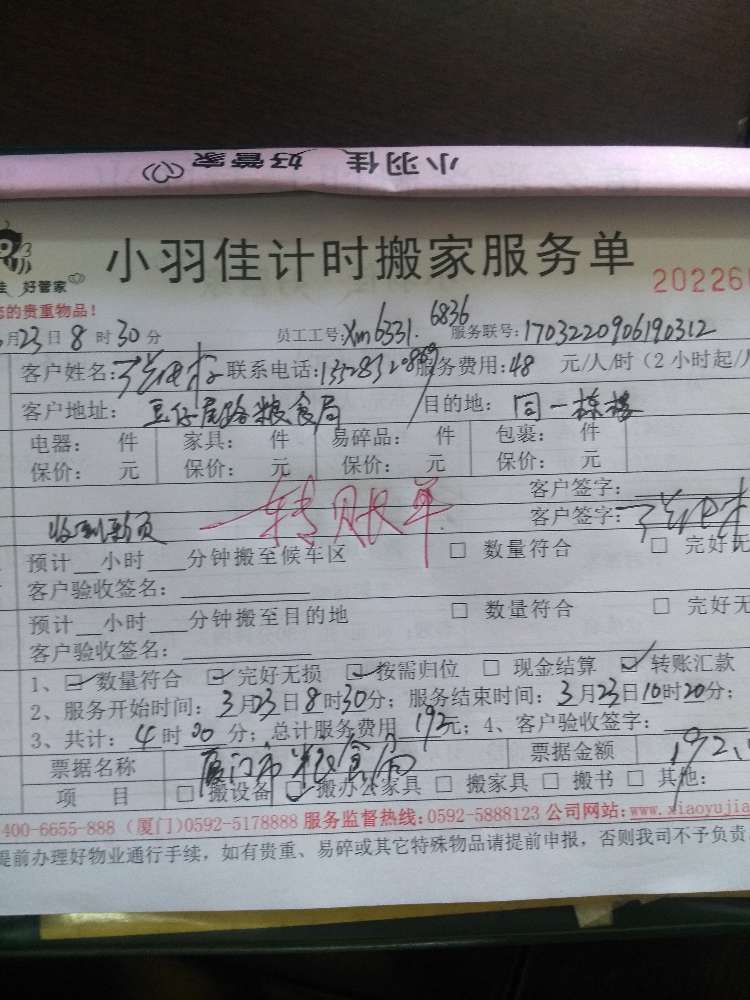 小羽佳 好管家
小羽佳计时搬家服务单
好管家
20226
的贵重物品！
月23日8时30分 员工工号:Xm6331. 6836 服务联号:1703220906190312
客户姓名: 联系电话: 服务费用:48 元/人/时（2小时起/人
客户地址: 豆仔尾路粮食局 目的地: 同一栋楼
电器: 件 家具: 件 易碎品: 件 包裹: 件
保价: 元 保价: 元 保价: 元 保价: 元
客户签字:
转账单 客户签字:
预计__小时___分钟搬至候车区 □ 数量符合 □ 完好无
客户验收签名:
预计__小时___分钟搬至目的地 □ 数量符合 □ 完好无
客户验收签名:
1、☑数量符合 ☑完好无损 ☑按需归位 □ 现金结算 ☑转账汇款
2、服务开始时间: 3月23日8时30分; 服务结束时间: 3月23日10时20分;
3、共计: 4时00分; 总计服务费用 192元; 4、客户验收签字:
票据名称 厦门市粮食局 票据金额 192.
项 目 □ 搬设备 ☑ 搬办公家具 □ 搬家具 □ 搬书 □ 其他:
400-6655-888 (厦门)0592-5178888 服务监督热线:0592-5888123 公司网站:www.xiaoyujia
提前办理好物业通行手续，如有贵重、易碎或其它特殊物品请提前申报，否则我司不予负责